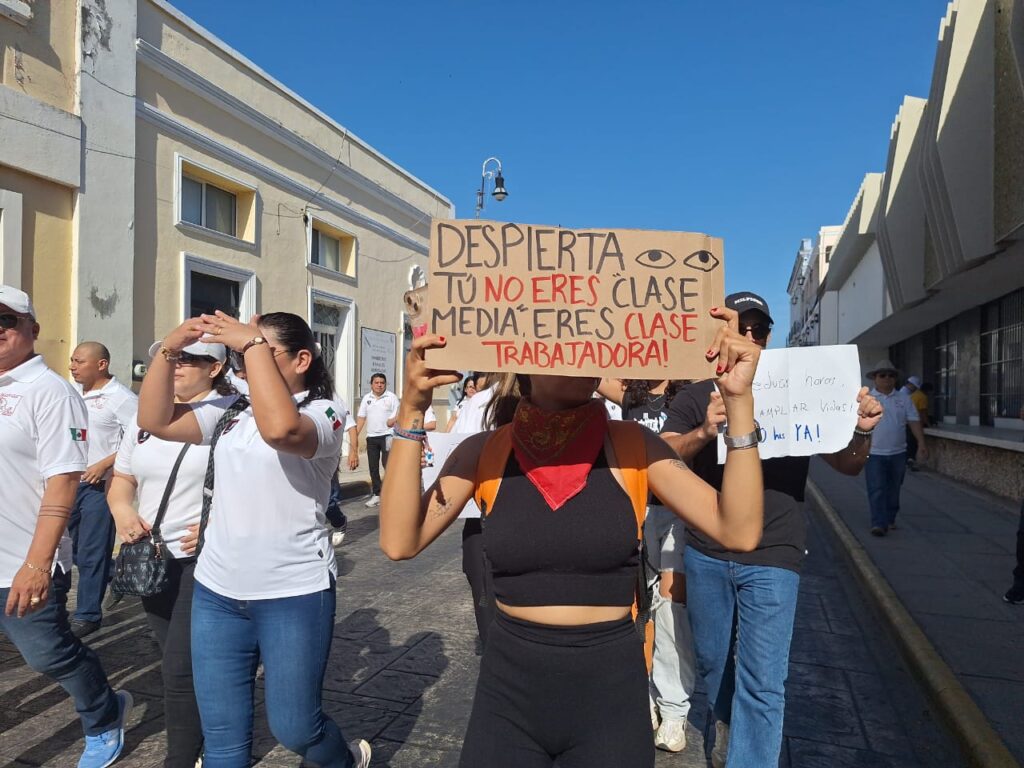 DESPIERTA
TÚ NO ERES "CLASE
MEDIA". ERES CLASE
TRABAJADORA!
horas,
AMPLIAR Vidas!
YA!